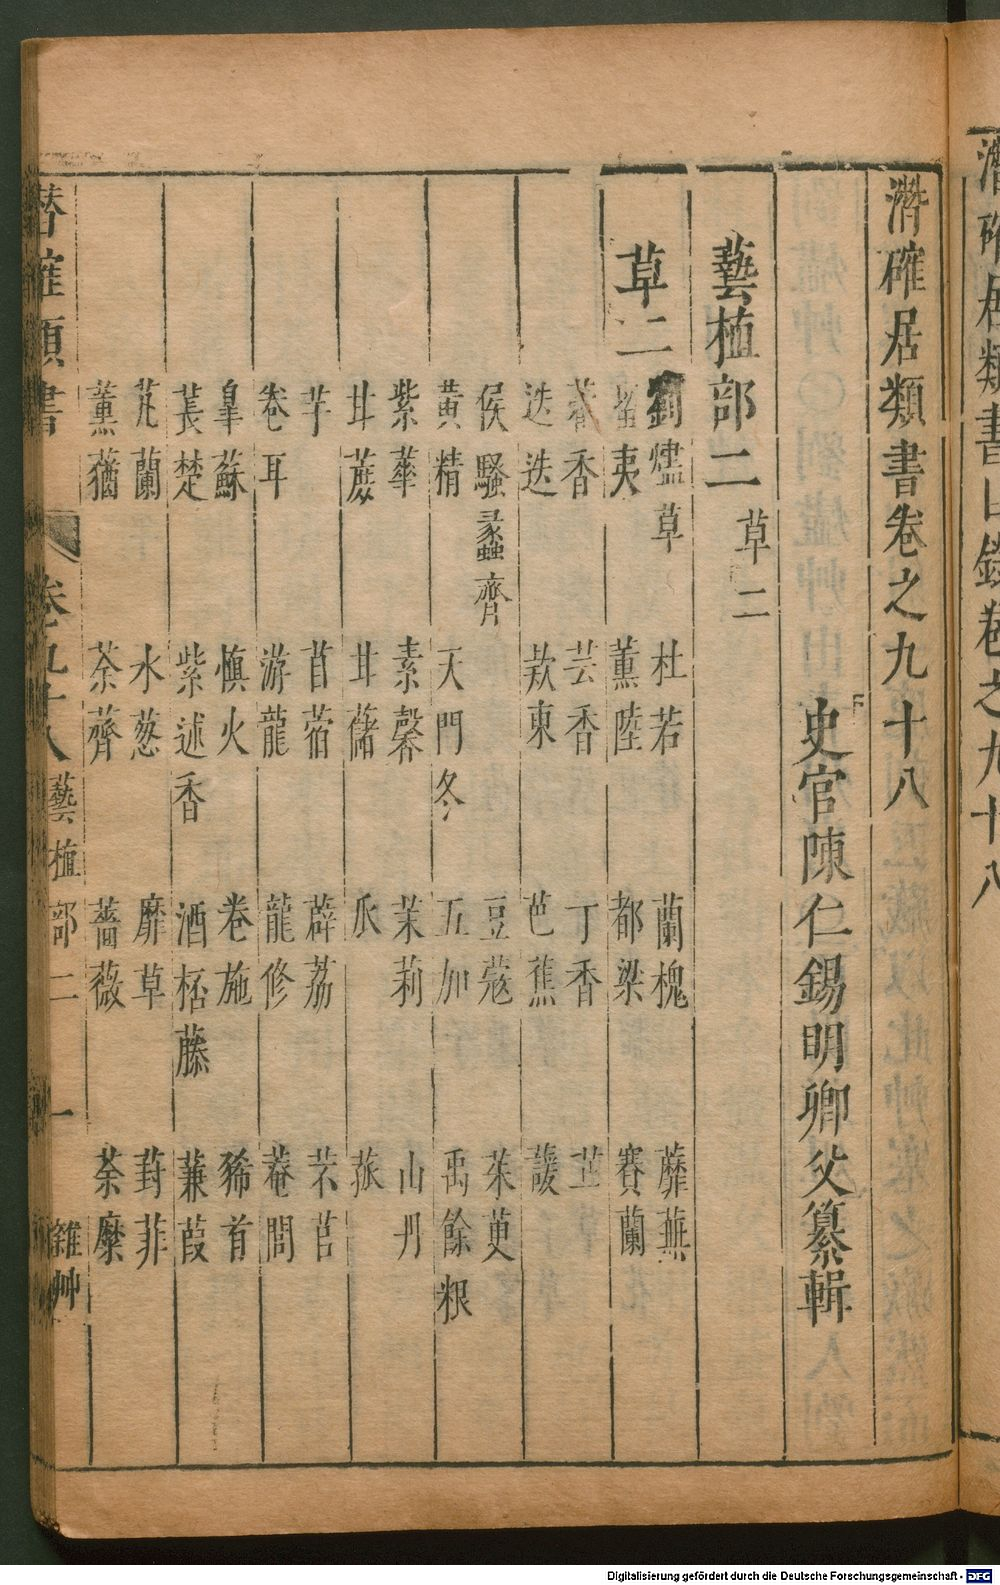 潛確居類書卷之九十八
史官陳仁錫明卿父纂輯
藝植部二 草二
草二
劉燼草 杜若 蘭槐 蘼蕪
留夷 薰陸 都梁 賽蘭
藿香 芸香 丁香 芷
迷迭 欵東 芭蕉 蘐
侯騷蟸齊 豆蔻 茱萸
黃精 天門冬 五加 禹餘粮
紫蕐 素馨 茉莉 山丹
甘蔗 甘藷 瓜 菰
芋 苜蓿 薜荔 芣苢
卷耳 游龍 龍修 菴閭
皐蘇 慎火 卷施 豨首
萇楚 紫述香 酒桮藤 蒹葭
芄蘭 水葱 靡草 葑菲
薰蕕 荼薺 薔薇 荼蘪
潛確類書 卷九十八 藝植部二 一 雜艸
潛確居類書目錄卷之九十八
Digitalisierung gefördert durch die Deutsche Forschungsgemeinschaft - DFG